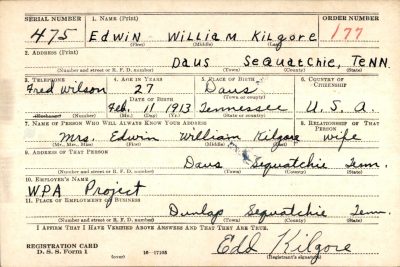 SERIAL NUMBER 1. NAME (Print) ORDER NUMBER
475 EDWIN WILLIAM KILGORE 177
(First) (Middle) (Last)
2. ADDRESS (Print)
DAUS SEQUATCHIE, TENN.
(Number and street or R. F. D. number) (Town) (County) (State)
3. TELEPHONE 4. AGE IN YEARS 5. PLACE OF BIRTH 6. COUNTRY OF CITIZENSHIP
Fred Wilson 27 Daus
DATE OF BIRTH (Town or county)
Feb. 11 1913 Tennessee U.S.A.
(Exchange) (Number) (Mo.) (Day) (Yr.) (State or country)
7. NAME OF PERSON WHO WILL ALWAYS KNOW YOUR ADDRESS 8. RELATIONSHIP OF THAT PERSON
Mrs. Edwin William Kilgore Wife
(Mr., Mrs., Miss) (First) (Middle) (Last)
9. ADDRESS OF THAT PERSON
Daus Sequatchie Tenn.
(Number and street or R. F. D. number) (Town) (County) (State)
10. EMPLOYER'S NAME
WPA Project
11. PLACE OF EMPLOYMENT OR BUSINESS
Dunlap Sequatchie Tenn.
(Number and street or R. F. D. number) (Town) (County) (State)
I AFFIRM THAT I HAVE VERIFIED ABOVE ANSWERS AND THAT THEY ARE TRUE.
REGISTRATION CARD
D. S. S. Form 1 (over) 16-17105
Edd Kilgore
(Registrant's signature)